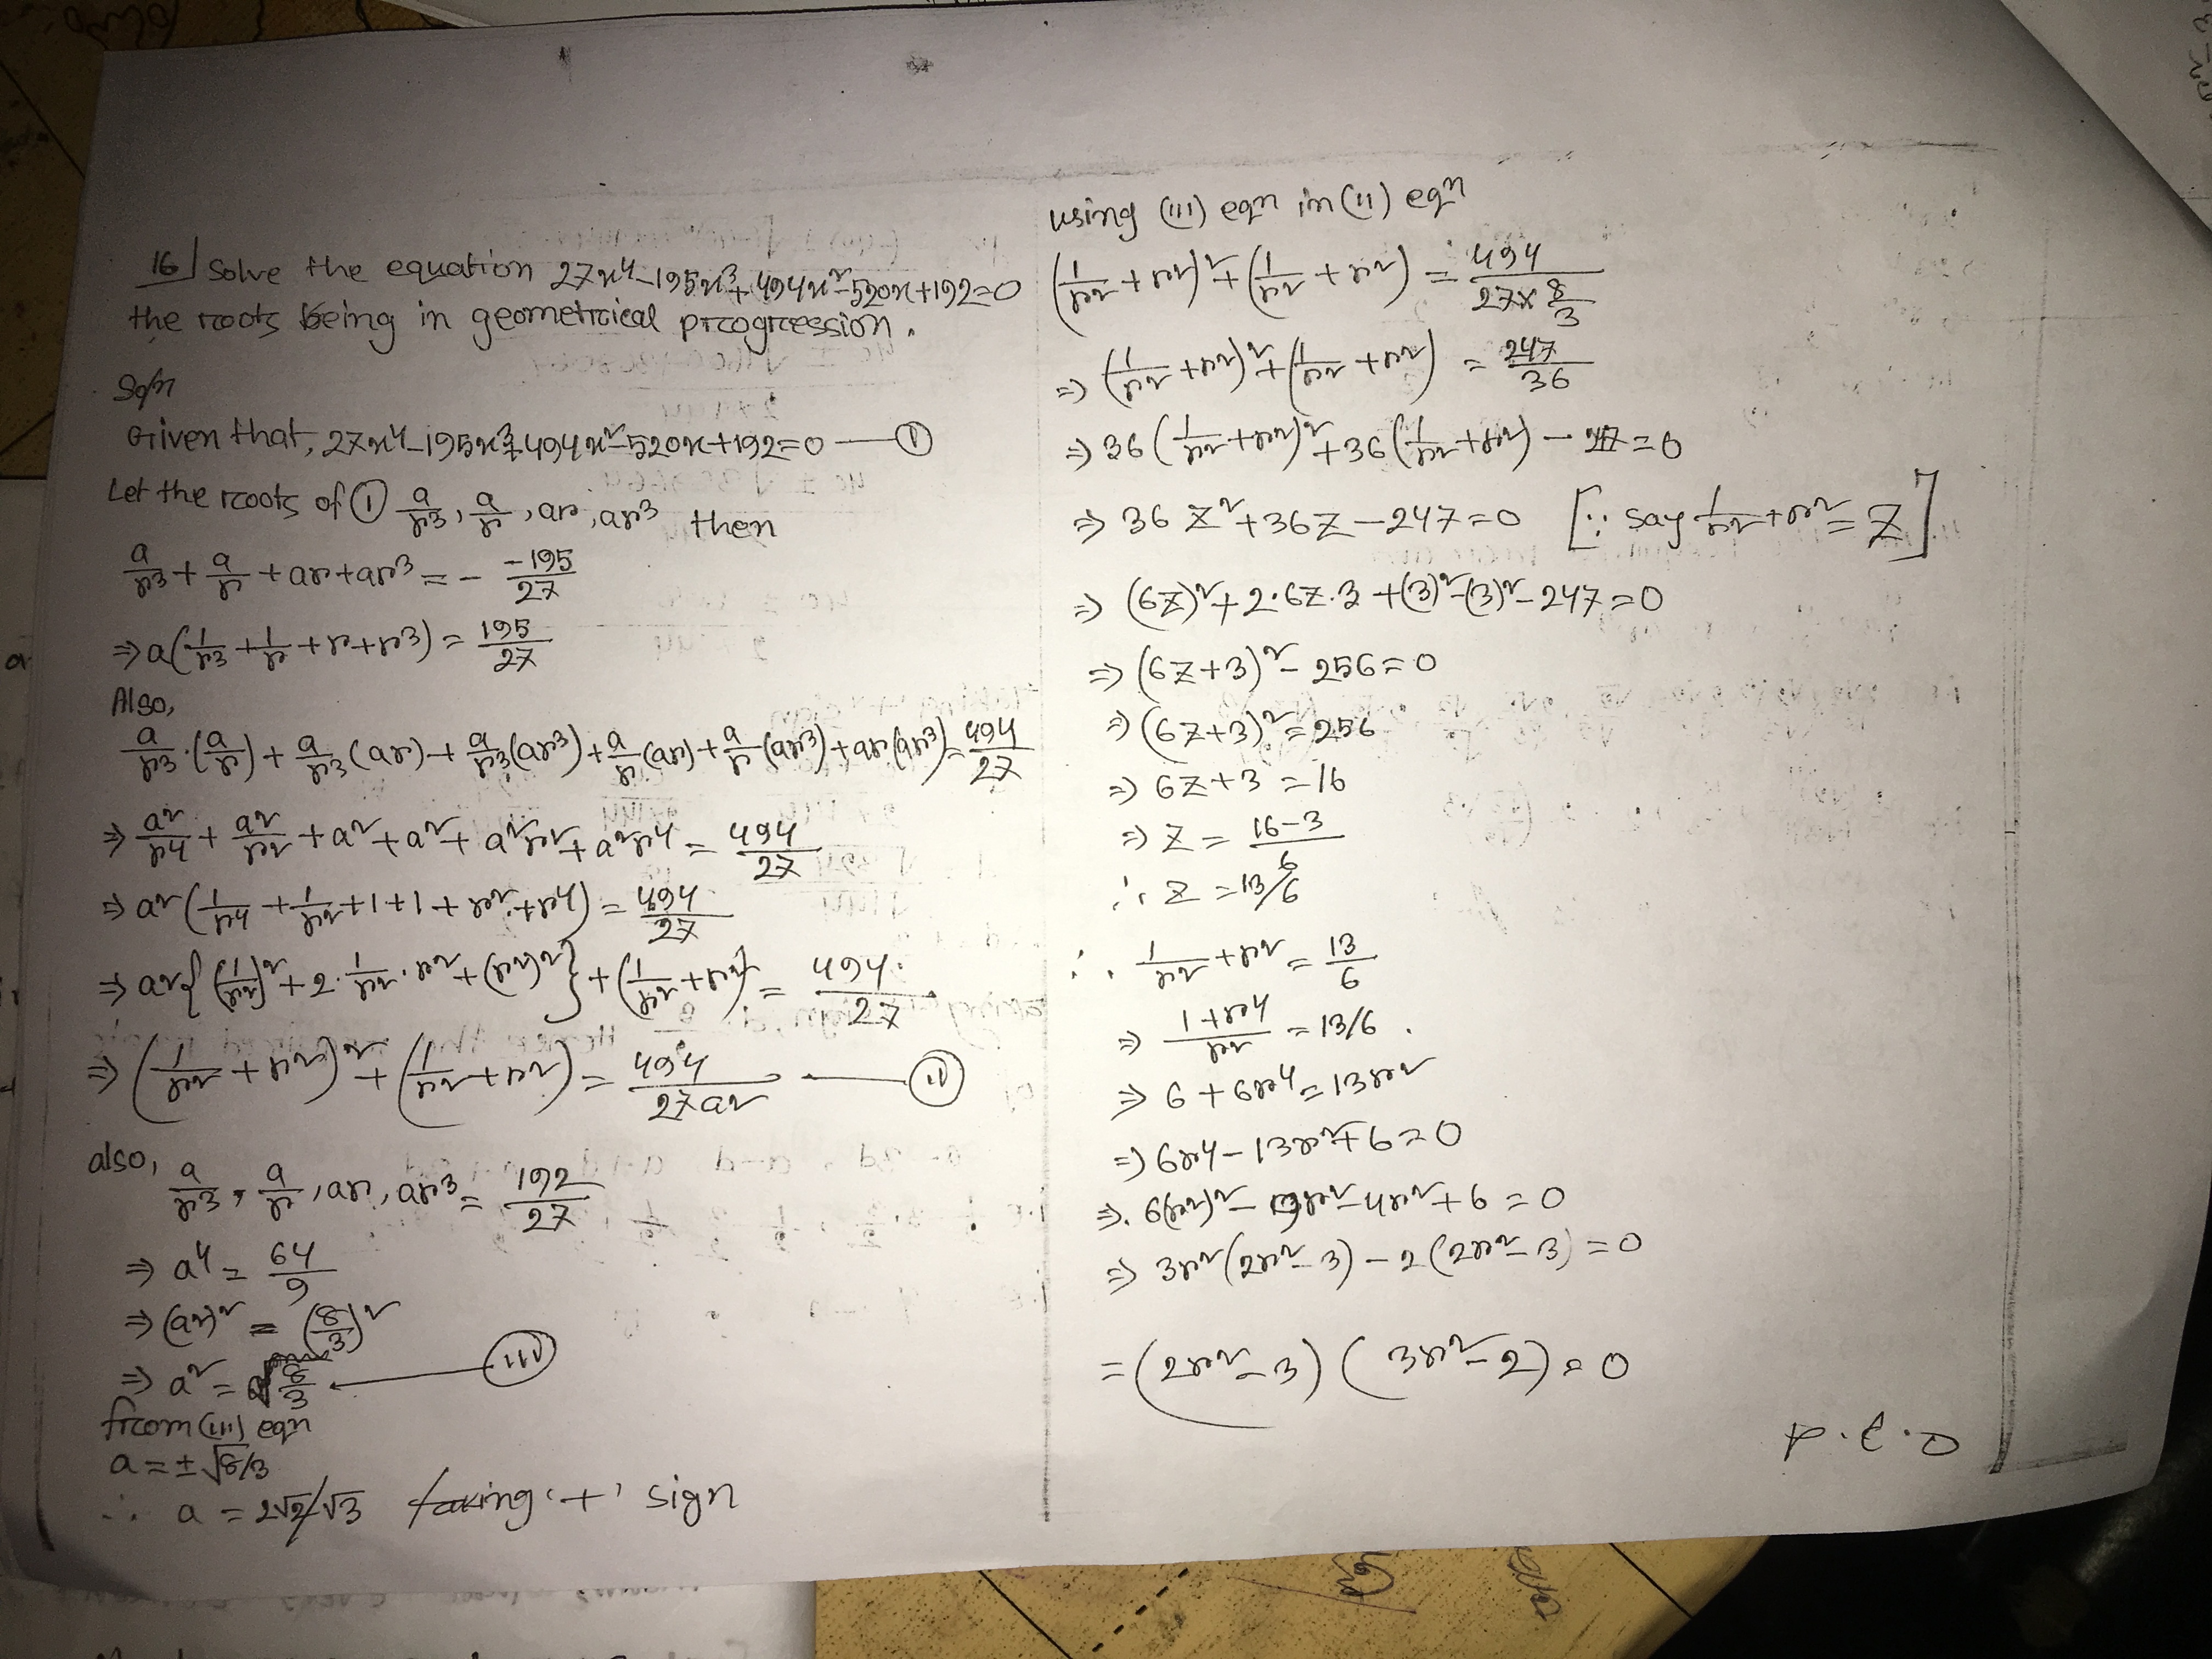 16| Solve the equation 27x⁴-195x³+494x²-520x+192=0
the roots being in geometrical progression.
Soln
Given that, 27x⁴-195x³+494x²-520x+192=0 — (1)
Let the roots of (1) a/r³, a/r, ar, ar³ then
a/r³ + a/r + ar + ar³ = - -195/27
⇒ a(1/r³ + 1/r + r + r³) = 195/27
Also,
a/r³·(a/r) + a/r³(ar) + a/r³(ar³) + a/r(ar) + a/r(ar³) + ar(ar³) = 494/27
⇒ a²/r⁴ + a²/r² + a² + a² + a²r² + a²r⁴ = 494/27
⇒ a²(1/r⁴ + 1/r² + 1 + 1 + r² + r⁴) = 494/27
⇒ a²{(1/r²)² + 2·1/r²·r² + (r²)²} + (1/r² + r²) = 494/27
⇒ (1/r² + r²)² + (1/r² + r²) = 494/27a² — (11)
also,
a/r³, a/r, ar, ar³ = 192/27
⇒ a⁴ = 64/9
⇒ (a²)² = (8/3)²
⇒ a² = 8/3 — (111)
from (111) eqn
a = ±√8/3
∴ a = 2√2/√3 taking '+' sign
using (111) eqn in (11) eqn
(1/r² + r²)² + (1/r² + r²) = 494/27×8/3
⇒ (1/r² + r²)² + (1/r² + r²) = 247/36
⇒ 36(1/r² + r²)² + 36(1/r² + r²) - 247 = 0
⇒ 36Z² + 36Z - 247 = 0 [∵ say 1/r² + r² = Z]
⇒ (6Z)² + 2·6Z·3 + (3)² - (3)² - 247 = 0
⇒ (6Z+3)² - 256 = 0
⇒ (6Z+3)² = 256
⇒ 6Z+3 = 16
⇒ Z = 16-3/6
∴ Z = 13/6
∴ 1/r² + r² = 13/6
⇒ 1+r⁴/r² = 13/6.
⇒ 6+6r⁴ = 13r²
⇒ 6r⁴ - 13r² + 6 = 0
⇒ 6(r²)² - 9r² - 4r² + 6 = 0
⇒ 3r²(2r²-3) - 2(2r²-3) = 0
= (2r²-3)(3r²-2) = 0
P.t.o